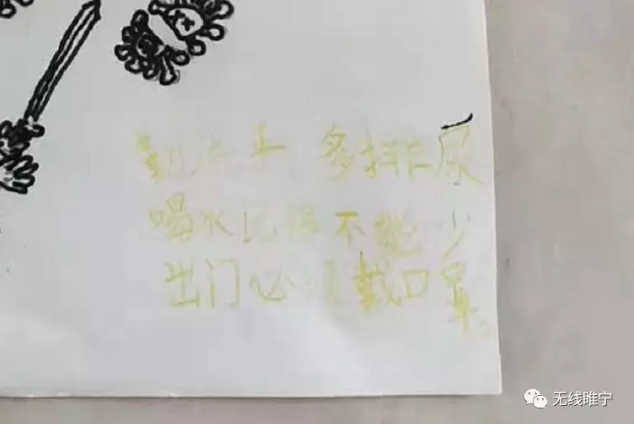 勤洗手 多排尿
喝水 不能少
出门必须戴口罩。
无线睢宁